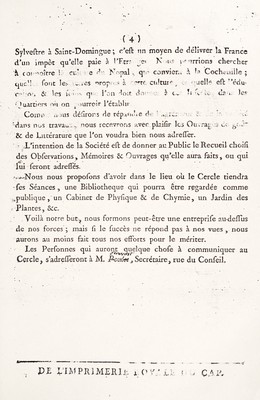 ( 4 )
Sylvestre à Saint-Domingue; c'est un moyen de délivrer la France
d'un impôt qu'elle paie à l'Etranger. Nous pourrions chercher
à connoître la culture du Nopal, que convient à la Cochenille;
quelles sont les terres propres à cette culture, quelle est l'édu-
cation, & les soins que l'on doit donner à
Quartiers où on pourroit l'établir.
Comme nous désirons de répandre
dans nos travaux, nous recevrons avec plaisir les Ouvrages de goût
& de Littérature que l'on voudra bien nous adresser.
L'intention de la Société est de donner au Public le Recueil choisi
des Observations, Mémoires & Ouvrages qu'elle aura faits, ou qui
lui seront adressés.
Nous nous proposons d'avoir dans le lieu où le Cercle tiendra
ses Séances, une Bibliotheque qui pourra être regardée comme
publique, un Cabinet de Physique & de Chymie, un Jardin des
Plantes, &c.
Voilà notre but, nous formons peut-être une entreprise au-dessus
de nos forces; mais si le succès ne répond pas à nos vues, nous
aurons au moins fait tous nos efforts pour le mériter.
Les Personnes qui auront quelque chose à communiquer au
Cercle, s'adresseront à M. Secrétaire, rue du Conseil.
DE L'IMPRIMERIE ROYALE DU CAP.